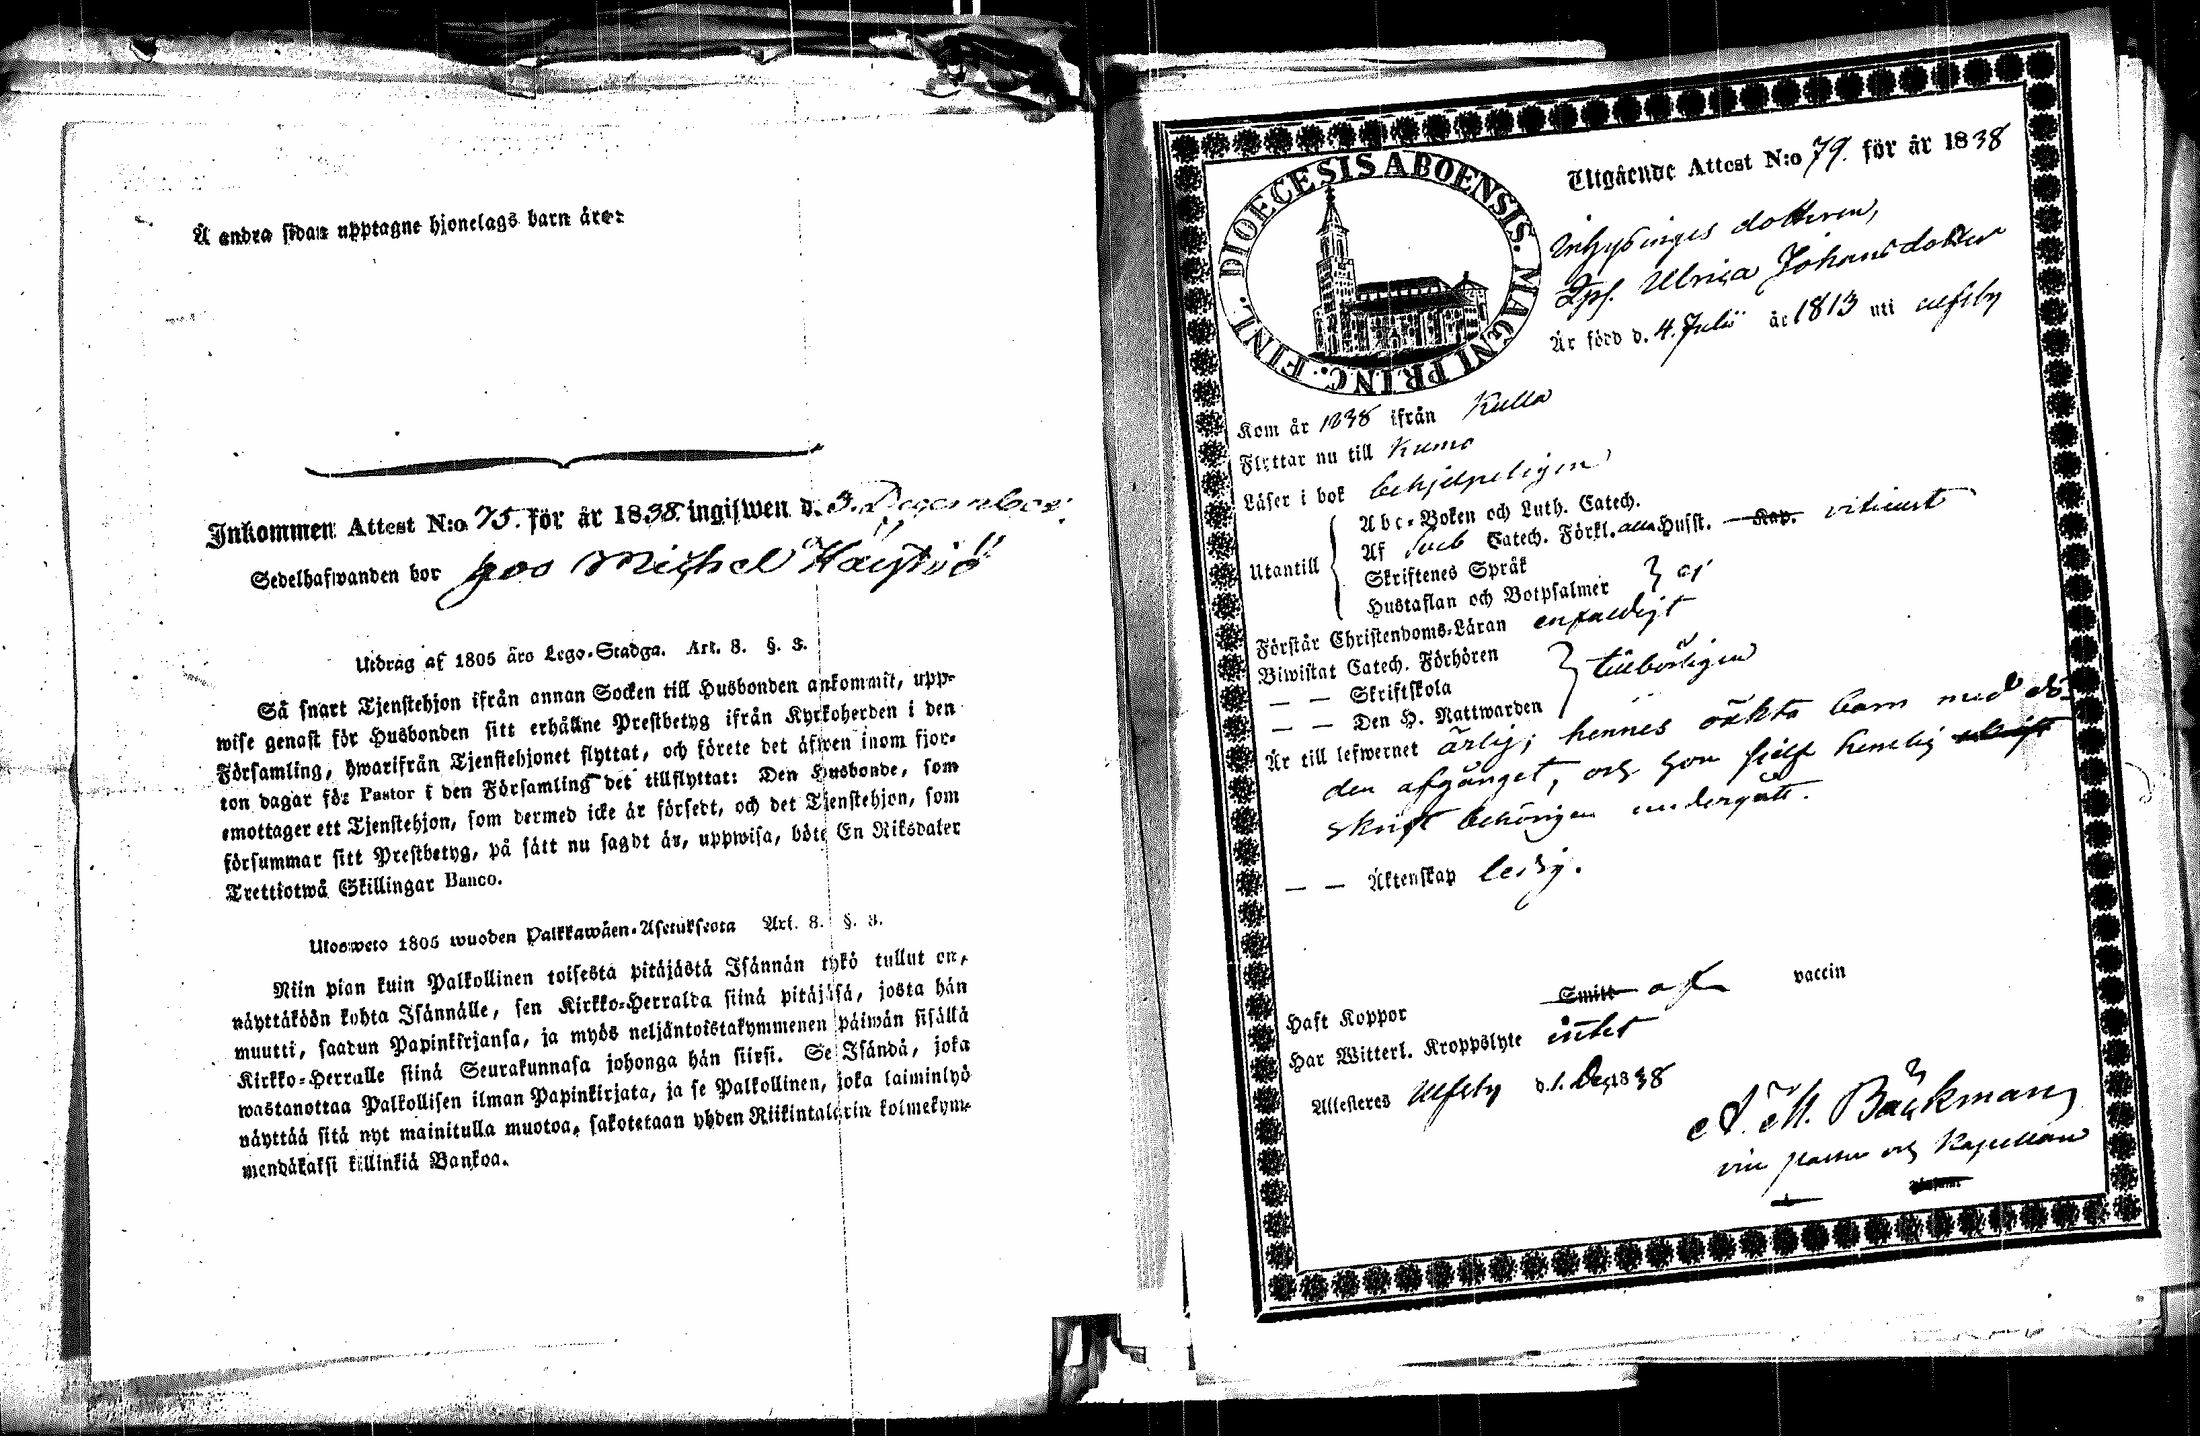 Å andra sidan upptagne hjonelags barn äro:
Inkommen Attest N:o 75. för år 1838. ingifwen d. 3. December.
Sedelhafwanden bor hos Michel Häystiö
Utdrag af 1805 års Lego-Stadga. Art. 8. §. 3.
Så snart Tjenstehjon ifrån annan Socken till Husbonden ankommit, upp-
wise genast för Husbonden sitt erhållne Prestbetyg ifrån Kyrkoherden i den
Församling, hwarifrån Tjenstehjonet flyttat, och förete det äfwen inom fjor-
ton dagar för Pastor i den Församling det tillflyttat: Den Husbonde, som
emottager ett Tjenstehjon, som dermed icke är försedt, och det Tjenstehjon, som
försummar sitt Prestbetyg, på sätt nu sagdt är, uppwisa, böte En Riksdaler
Trettiotwå Skillingar Banco.
Ulosweto 1805 wuoden Palkkawäen-Asetuksesta Art. 8. §. 3.
Niin pian kuin Palkollinen toisesta pitäjästä Isännän tykö tullut on,
näyttäköön kohta Isännälle, sen Kirkko-Herralda siinä pitäjäsä, josta hän
muutti, saadun Papinkirjansa, ja myös neljäntoistakymmenen päiwän sisällä
Kirkko-Herralle siinä Seurakunnasa johonga hän siirsi. Se Isändä, joka
wastanottaa Palkollisen ilman Papinkirjata, ja se Palkollinen, joka laiminlyö
näyttää sitä nyt mainitulla muotoa, sakotetaan yhden Riikintalarin kolmekym-
mendäkaksi killinkiä Bankoa.
DIOECESIS ABOENSIS. MAGNI PRINC. FINL.
Utgående Attest N:o 79. för år 1838
Inhysinges dotteren,
Qps. Ulrica Johansdotter
Är född d. 4. Julii år 1813 uti Ulfsby
Kom år 1838 ifrån Kulla
Flyttar nu till Kumo
Läser i bok behjelpeligen
Utantill
Abc-Boken och Luth. Catech.
Af Sveb Catech. Förkl. alla Husst. Kap. vitieust
Skriftenes Språk
Hustaflan och Botpsalmer ej
Förstår Christendoms-Läran enfaldigt
Biwistat Catech. Förhören
— — Skriftskola tillbörligen
— — Den H. Nattwarden
Är till lefwernet ärlig; hennes oäkta barn med dö-
den afgånget, och hon sielf hemlig
skrift behörigen undergått.
— — Äktenskap ledig.
Haft Koppor Smitt af vaccin
Har Witterl. Kroppslyte intet
Attesteres Ulfsby d. 1. Dec. 1838
A. M. Bäckman,
vice pastor och Kapellan